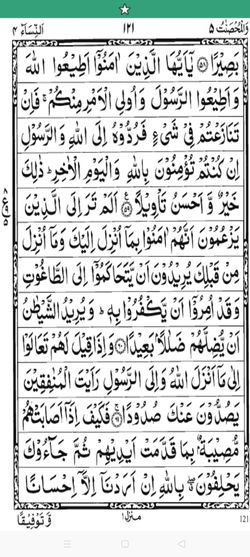 وَالْمُحْصَنٰتُ ٥ ١٢١ اَلنِّسَآء ٤
بَصِيْرًا ۝٥٨ يٰٓاَيُّهَا الَّذِيْنَ اٰمَنُوْۤا اَطِيْعُوا اللّٰهَ
وَ اَطِيْعُوا الرَّسُوْلَ وَ اُولِى الْاَمْرِ مِنْكُمْ ۚ فَاِنْ
تَنَازَعْتُمْ فِىْ شَىْءٍ فَرُدُّوْهُ اِلَى اللّٰهِ وَ الرَّسُوْلِ
اِنْ كُنْتُمْ تُؤْمِنُوْنَ بِاللّٰهِ وَ الْيَوْمِ الْاٰخِرِ ؕ ذٰلِكَ
خَيْرٌ وَّ اَحْسَنُ تَاْوِيْلًا ۝٥٩ اَلَمْ تَرَ اِلَى الَّذِيْنَ
يَزْعُمُوْنَ اَنَّهُمْ اٰمَنُوْا بِمَاۤ اُنْزِلَ اِلَيْكَ وَ مَاۤ اُنْزِلَ
مِنْ قَبْلِكَ يُرِيْدُوْنَ اَنْ يَّتَحَاكَمُوْۤا اِلَى الطَّاغُوْتِ
وَ قَدْ اُمِرُوْۤا اَنْ يَّكْفُرُوْا بِهٖ ؕ وَ يُرِيْدُ الشَّيْطٰنُ
اَنْ يُّضِلَّهُمْ ضَلٰلًۢا بَعِيْدًا ۝٦٠ وَ اِذَا قِيْلَ لَهُمْ تَعَالَوْا
اِلٰى مَاۤ اَنْزَلَ اللّٰهُ وَ اِلَى الرَّسُوْلِ رَاَيْتَ الْمُنٰفِقِيْنَ
يَصُدُّوْنَ عَنْكَ صُدُوْدًا ۝٦١ فَكَيْفَ اِذَاۤ اَصَابَتْهُمْ
مُّصِيْبَةٌۢ بِمَا قَدَّمَتْ اَيْدِيْهِمْ ثُمَّ جَآءُوْكَ
يَحْلِفُوْنَ ۖ بِاللّٰهِ اِنْ اَرَدْنَاۤ اِلَّاۤ اِحْسَانًا
منزل ١ وَّ تَوْفِيْقًا
121